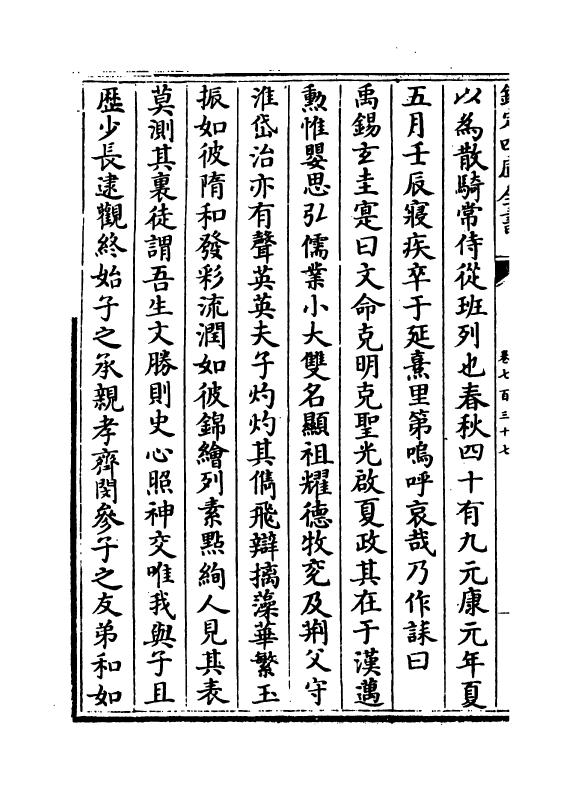 欽定四庫全書
卷七百三十七
以為散騎常侍從班列也春秋四十有九元康元年夏
五月壬辰寢疾卒于延熹里第嗚呼哀哉乃作誄曰
禹錫玄圭寔曰文命克明克聖光啟夏政其在于漢邁
勲惟嬰思弘儒業小大雙名顯祖耀德牧兖及荆父守
淮岱治亦有聲英英夫子灼灼其儁飛辯摛藻華繁玉
振如彼隋和發彩流潤如彼錦繪列素點絢人見其表
莫測其裏徒謂吾生文勝則史心照神交唯我與子且
歴少長逮觀終始子之承親孝齊閔參子之友弟和如